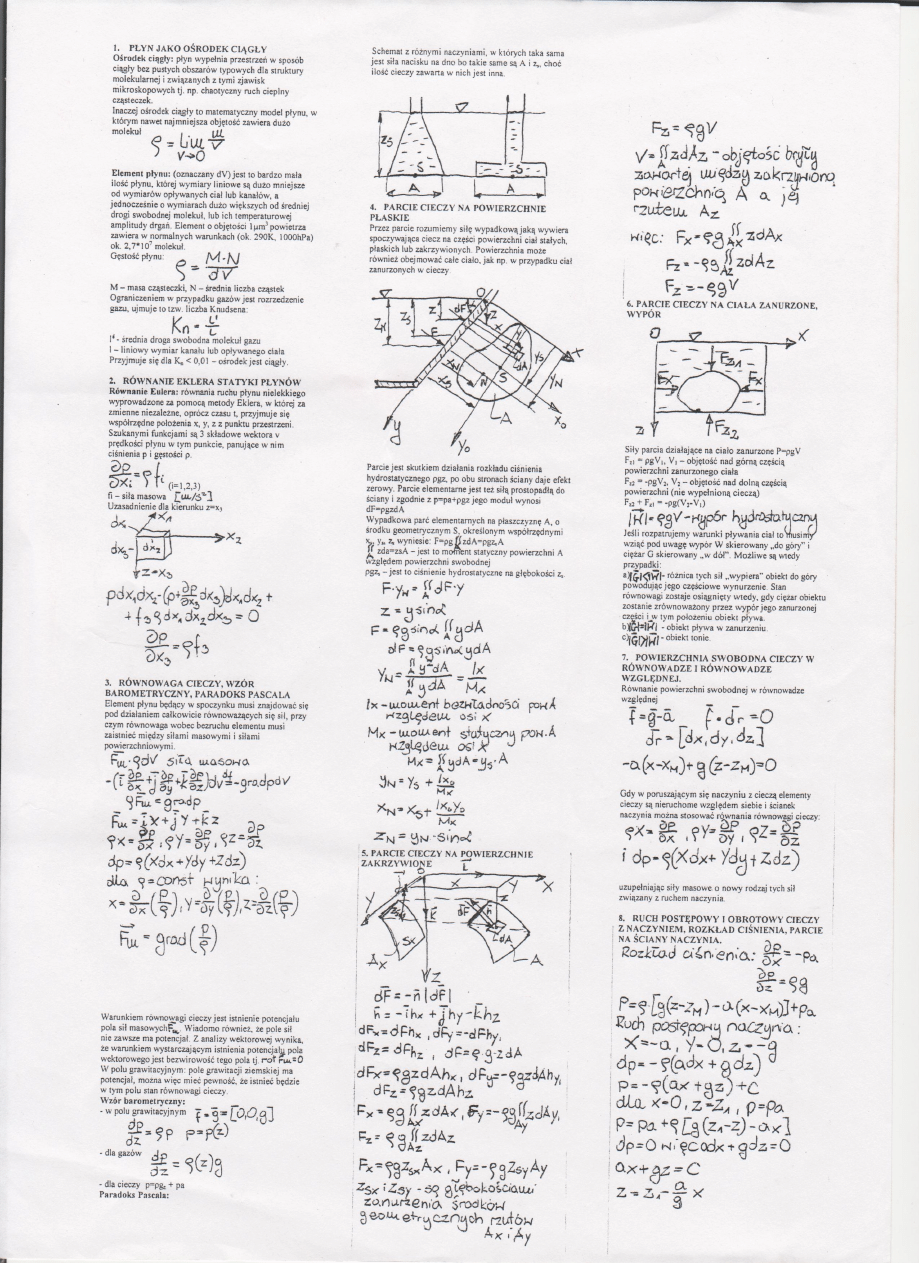 1. PŁYN JAKO OŚRODEK CIĄGŁY
Ośrodek ciągły: płyn wypełnia przestrzeń w sposób
ciągły bez pustych obszarów typowych dla struktury
molekularnej i związanych z tymi zjawisk
mikroskopowych tj. np. chaotyczny ruch cieplny
cząsteczek.
Inaczej ośrodek ciągły to matematyczny model płynu, w
którym nawet najmniejsza objętość zawiera dużo
molekuł
ρ = Lim m/V
V→0
Element płynu: (oznaczany dV) jest to bardzo mała
ilość płynu, której wymiary liniowe są dużo mniejsze
od wymiarów opływanych ciał lub kanałów, a
jednocześnie o wymiarach dużo większych od średniej
drogi swobodnej molekuł, lub ich temperaturowej
amplitudy drgań. Element o objętości 1μm³ powietrza
zawiera w normalnych warunkach (ok. 290K, 1000hPa)
ok. 2,7*10⁷ molekuł.
Gęstość płynu: ρ = M·N/dV
M – masa cząsteczki, N – średnia liczba cząstek
Ograniczeniem w przypadku gazów jest rozrzedzenie
gazu, ujmuje to tzw. liczba Knudsena:
Kn = l'/l
l' - średnia droga swobodna molekuł gazu
l – liniowy wymiar kanału lub opływanego ciała
Przyjmuje się dla Kn < 0,01 – ośrodek jest ciągły.
2. RÓWNANIE EKLERA STATYKI PŁYNÓW
Równanie Eulera: równania ruchu płynu nielekkiego
wyprowadzone za pomocą metody Eklera, w której za
zmienne niezależne, oprócz czasu t, przyjmuje się
współrzędne położenia x, y, z z punktu przestrzeni.
Szukanymi funkcjami są 3 składowe wektora v
prędkości płynu w tym punkcie, panujące w nim
ciśnienia p i gęstości ρ.
∂p/∂xi = ρfi (i=1,2,3)
fi – siła masowa [m/s²]
Uzasadnienie dla kierunku z=x₃
dx₁ x₁
x₂
dx₃ dx₂
z=x₃
pdx₁dx₂-(p+∂p/∂x₃ dx₃)dx₁dx₂ +
+f₃ρdx₁dx₂dx₃ = 0
∂p/∂x₃ = ρf₃
3. RÓWNOWAGA CIECZY, WZÓR
BAROMETRYCZNY, PARADOKS PASCALA
Element płynu będący w spoczynku musi znajdować się
pod działaniem całkowicie równoważących się sił, przy
czym równowaga wobec bezruchu elementu musi
zaistnieć między siłami masowymi i siłami
powierzchniowymi.
Fm·ρdV siła masowa
-(i ∂p/∂x + j ∂p/∂y + k ∂p/∂z)dV = -gradpdV
ρFm = gradp
Fm = iX + jY + kZ
ρX = ∂p/∂x , ρY = ∂p/∂y , ρZ = ∂p/∂z
dp = ρ(Xdx+Ydy+Zdz)
dla ρ=const wynika:
X = ∂/∂x(p/ρ), Y = ∂/∂y(p/ρ), Z = ∂/∂z(p/ρ)
Fm = grad(p/ρ)
Warunkiem równowagi cieczy jest istnienie potencjału
pola sił masowych Fm. Wiadomo również, że pole sił
nie zawsze ma potencjał. Z analizy wektorowej wynika,
że warunkiem wystarczającym istnienia potencjału pola
wektorowego jest bezwirowość tego pola tj. rot Fm=0
W polu grawitacyjnym: pole grawitacji ziemskiej ma
potencjał, można więc mieć pewność, że istnieć będzie
w tym polu stan równowagi cieczy.
Wzór barometryczny:
- w polu grawitacyjnym f = g = [0,0,g]
dp/dz = ρp p=p(z)
- dla gazów dp/dz = ρ(z)g
- dla cieczy p=ρgz + pa
Paradoks Pascala:
Schemat z różnymi naczyniami, w których taka sama
jest siła nacisku na dno bo takie same są A i zs, choć
ilość cieczy zawarta w nich jest inna.
zs S S
A A
4. PARCIE CIECZY NA POWIERZCHNIE
PŁASKIE
Przez parcie rozumiemy siłę wypadkową jaką wywiera
spoczywająca ciecz na części powierzchni ciał stałych,
płaskich lub zakrzywionych. Powierzchnia może
również obejmować całe ciało, jak np. w przypadku ciał
zanurzonych w cieczy.
O
zN zs z dF
F z
x
dA
ys yN
xN N S
xs
x
A x₀
y y₀
Parcie jest skutkiem działania rozkładu ciśnienia
hydrostatycznego pgz, po obu stronach ściany daje efekt
zerowy. Parcie elementarne jest też siłą prostopadłą do
ściany i zgodnie z p=pa+ρgz jego moduł wynosi
dF=pgzdA
Wypadkowa parć elementarnych na płaszczyznę A, o
środku geometrycznym S, określonym współrzędnymi
xs, ys, zs wyniesie: F=ρg∬zdA=pgzsA
∬ zda=zsA – jest to moment statyczny powierzchni A
względem powierzchni swobodnej
pgzs – jest to ciśnienie hydrostatyczne na głębokości zs.
F·yN = ∬A dF·y
z = ysinα
F = ρgsinα ∬A ydA
dF = ρgsinαydA
yN = ∬A y²dA / ∬A ydA = Ix/Mx
Ix – moment bezwładności pow A
względem osi x
Mx – moment statyczny pow. A
względem osi X
Mx = ∬A ydA = ys·A
yN = ys + Ix₀/Mx
xN = xs + Ix₀y₀/Mx
zN = yN·sinα
5. PARCIE CIECZY NA POWIERZCHNIE
ZAKRZYWIONE
X Y X
Sx k dF n
dA
Ax A
Z
dF = -n|dF|
n = -ihx + jhy - khz
dFx = dFhx , dFy = -dFhy,
dFz = dFhz , dF = ρ·g·zdA
dFx = ρgzdAhx, dFy = -ρgzdAhy,
dFz = ρgzdAhz
Fx = ρg∬Ax zdAx , Fy = -ρg∬Ay zdAy,
Fz = ρg∬Az zdAz
Fx = ρgzsxAx , Fy = -ρgzsyAy
zsx i zsy – są głębokościami
zanurzenia środków
geometrycznych rzutów
Ax i Ay
Fz = ρgV
V = ∬A zdAz – objętość bryły
zawartej między zakrzywioną
powierzchnią A a jej
rzutem Az
więc: Fx = ρg∬Ax zdAx
Fz = -ρg∬Az zdAz
Fz = -ρgV
6. PARCIE CIECZY NA CIAŁA ZANURZONE,
WYPÓR
O X
Fz1
Fx Fx
z Fz2
Siły parcia działające na ciało zanurzone P=pgV
Fz1 = ρgV₁, V₁ – objętość nad górną częścią
powierzchni zanurzonego ciała
Fz2 = -ρgV₂, V₂ – objętość nad dolną częścią
powierzchni (nie wypełnioną cieczą)
Fz2 + Fz1 = -ρg(V₂-V₁)
|W| = ρgV – wypór hydrostatyczny
Jeśli rozpatrujemy warunki pływania ciał to musimy
wziąć pod uwagę wypór W skierowany „do góry" i
ciężar G skierowany „w dół". Możliwe są wtedy
przypadki:
a)|G|<|W|- różnica tych sił „wypiera" obiekt do góry
powodując jego częściowe wynurzenie. Stan
równowagi zostaje osiągnięty wtedy, gdy ciężar obiektu
zostanie zrównoważony przez wypór jego zanurzonej
części i w tym położeniu obiekt pływa.
b)|G|=|W| - obiekt pływa w zanurzeniu.
c)|G|>|W| - obiekt tonie.
7. POWIERZCHNIA SWOBODNA CIECZY W
RÓWNOWADZE I RÓWNOWADZE
WZGLĘDNEJ.
Równanie powierzchni swobodnej w równowadze
względnej
f = g-a f·dr = 0
dr = [dx,dy,dz]
-a(x-xM)+g(z-zM)=0
Gdy w poruszającym się naczyniu z cieczą elementy
cieczy są nieruchome względem siebie i ścianek
naczynia można stosować równania równowagi cieczy:
ρX = ∂p/∂x , ρY = ∂p/∂y , ρZ = ∂p/∂z
i dp = ρ(Xdx+Ydy+Zdz)
uzupełniając siły masowe o nowy rodzaj tych sił
związany z ruchem naczynia.
8. RUCH POSTĘPOWY I OBROTOWY CIECZY
Z NACZYNIEM, ROZKŁAD CIŚNIENIA, PARCIE
NA ŚCIANY NACZYNIA.
Rozkład ciśnienia: ∂p/∂x = -ρa
∂p/∂z = ρg
P=ρ[g(z-zM)-a(x-xM)]+pa
Ruch postępowy naczynia:
X=-a, Y=0, z=-g
dp = -ρ(adx+gdz)
p = -ρ(ax+gz)+C
dla x=0, z=z₁, p=pa
p=pa+ρ[g(z₁-z)-ax]
dp=0 więc adx+gdz=0
ax+gz=C
z = z₁- a/g x